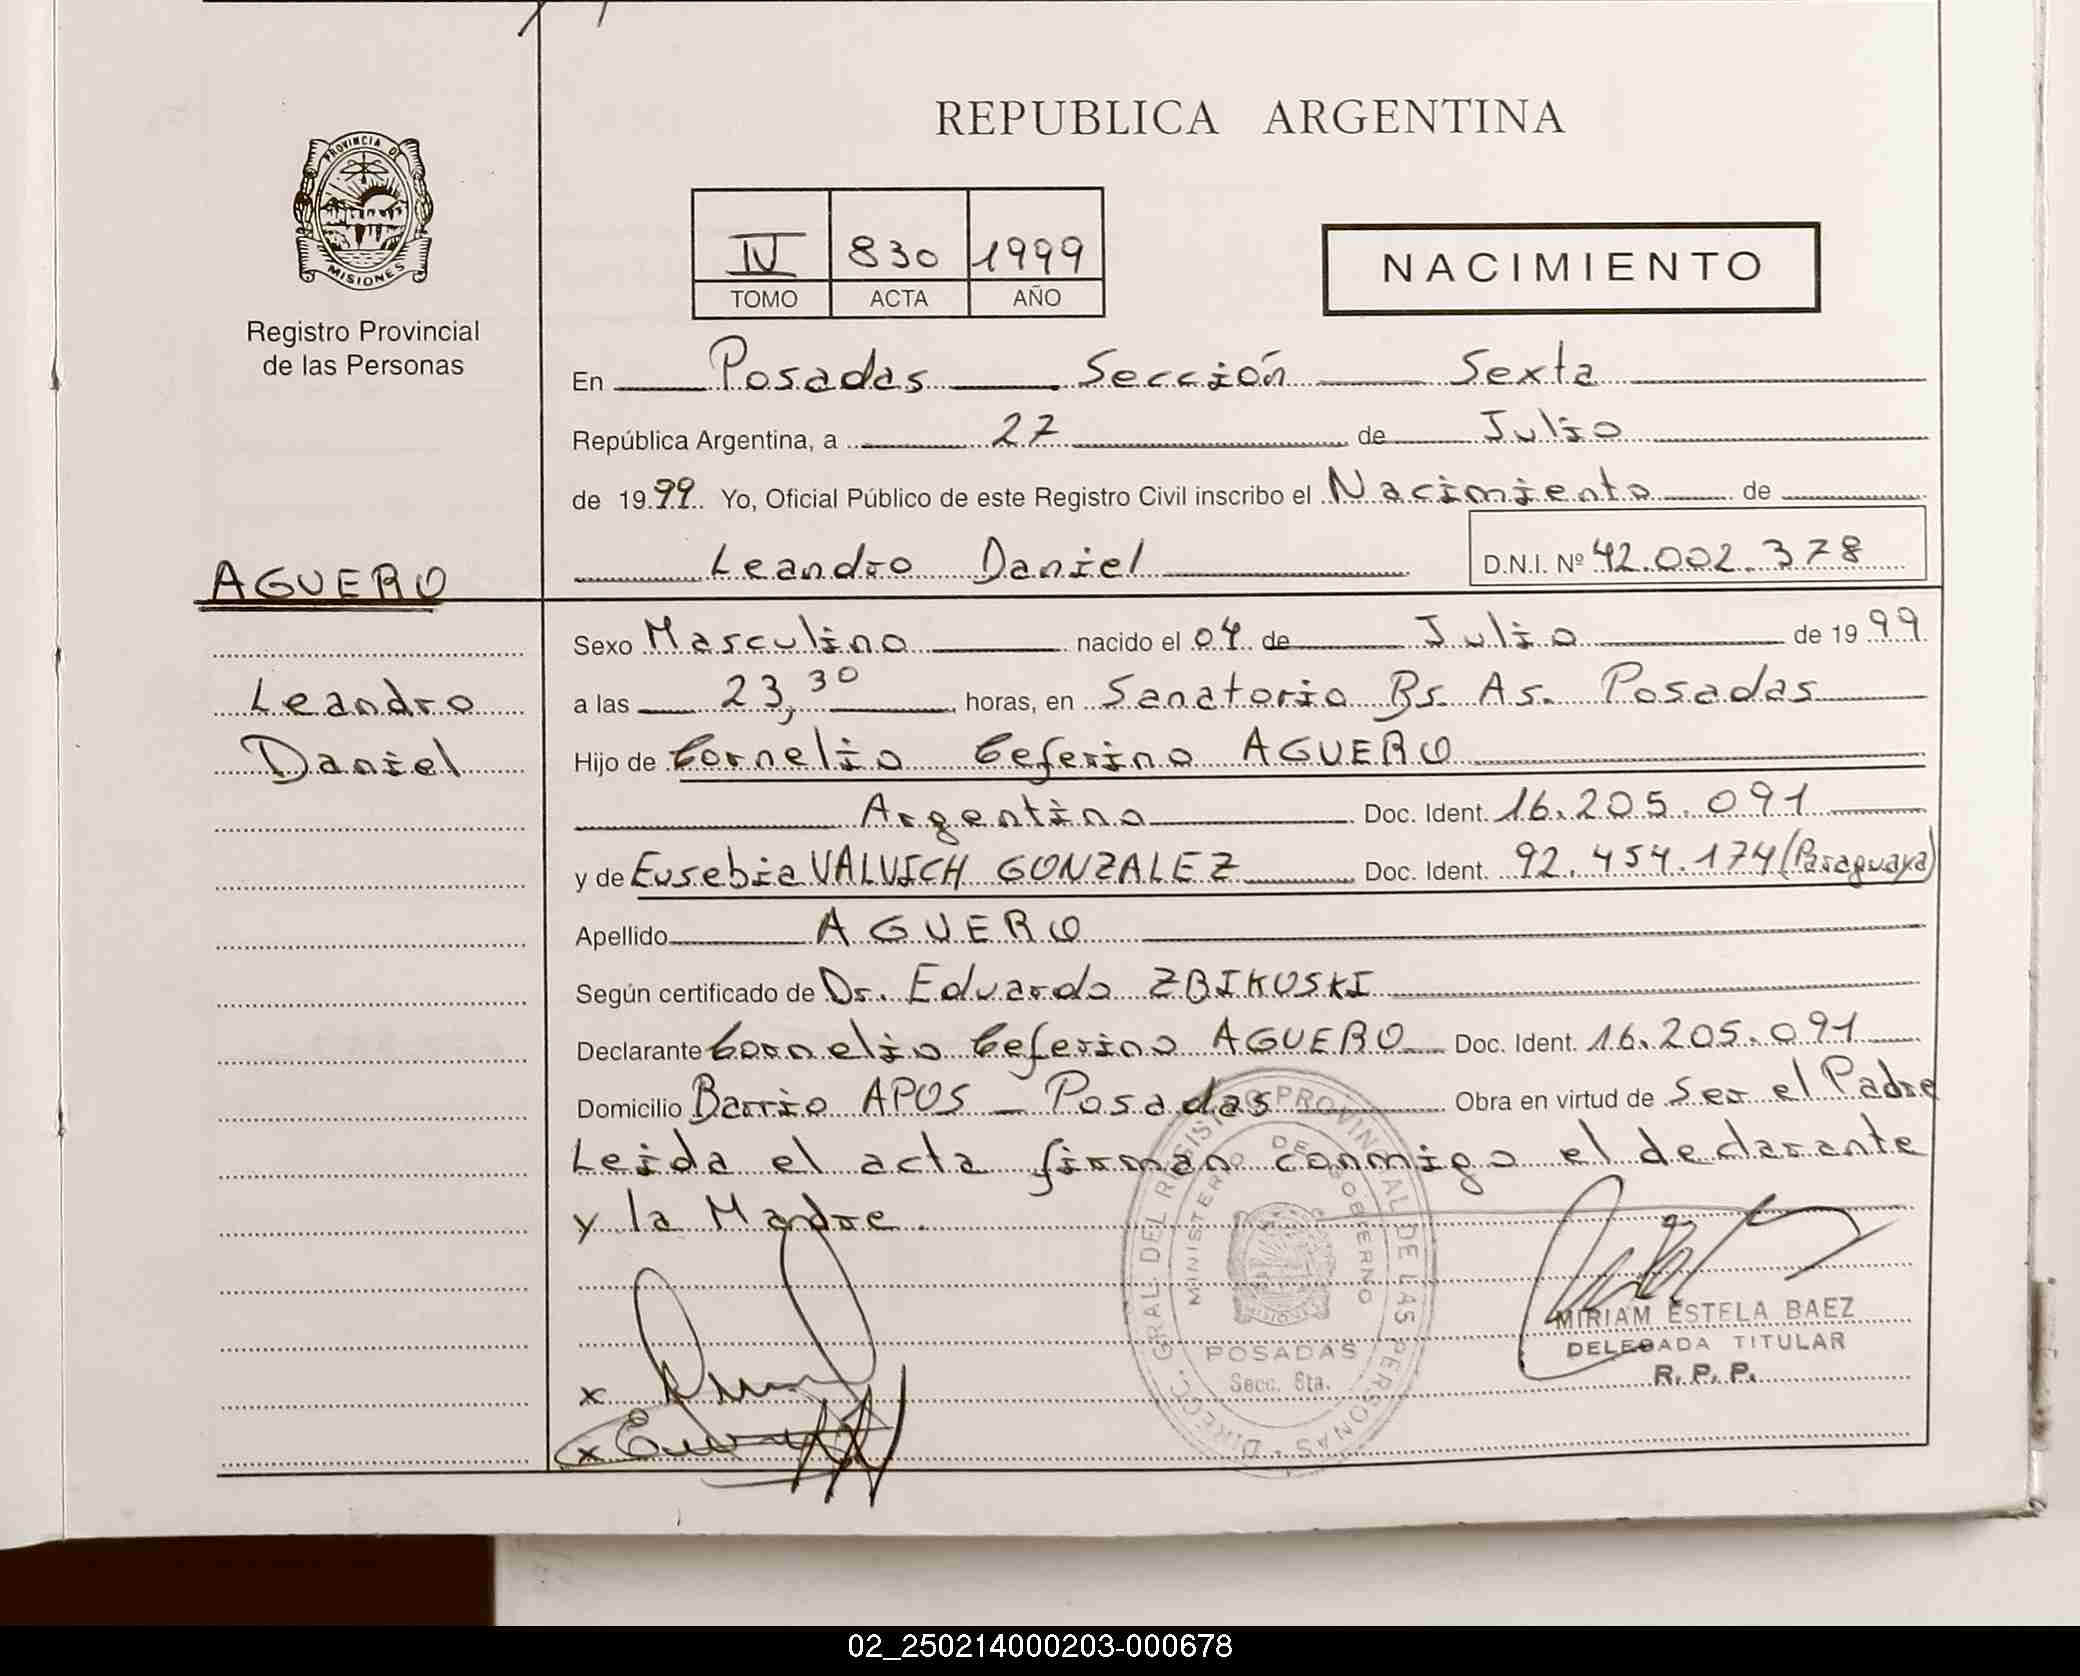 REPUBLICA ARGENTINA
PROVINCIA DE
MISIONES
Registro Provincial
de las Personas
IV 830 1999
TOMO ACTA AÑO
NACIMIENTO
En Posadas Sección Sexta
República Argentina, a 27 de Julio
de 1999 Yo, Oficial Público de este Registro Civil inscribo el Nacimiento de
Leandro Daniel D.N.I. Nº 42.002.378
AGUERO
Leandro
Daniel
Sexo Masculino nacido el 04 de Julio de 1999
a las 23,30 horas, en Sanatorio Bs. As. Posadas
Hijo de Cornelio Ceferino AGUERO
Argentino Doc. Ident. 16.205.091
y de Eusebia VALVICH GONZALEZ Doc. Ident. 92.454.174 (Paraguaya)
Apellido AGUERO
Según certificado de Dr. Eduardo ZBIKUSKI
Declarante Cornelio Ceferino AGUERO Doc. Ident. 16.205.091
Domicilio Barrio APOS - Posadas Obra en virtud de Ser el Padre
Leida el acta firman conmigo el declarante
y la Madre.
DIREC. GRAL. DEL REGISTRO PROVINCIAL DE LAS PERSONAS
MINISTERIO DE GOBIERNO
POSADAS
Secc. 6ta.
MIRIAM ESTELA BAEZ
DELEGADA TITULAR
R. P. P.
x
x
02_250214000203-000678